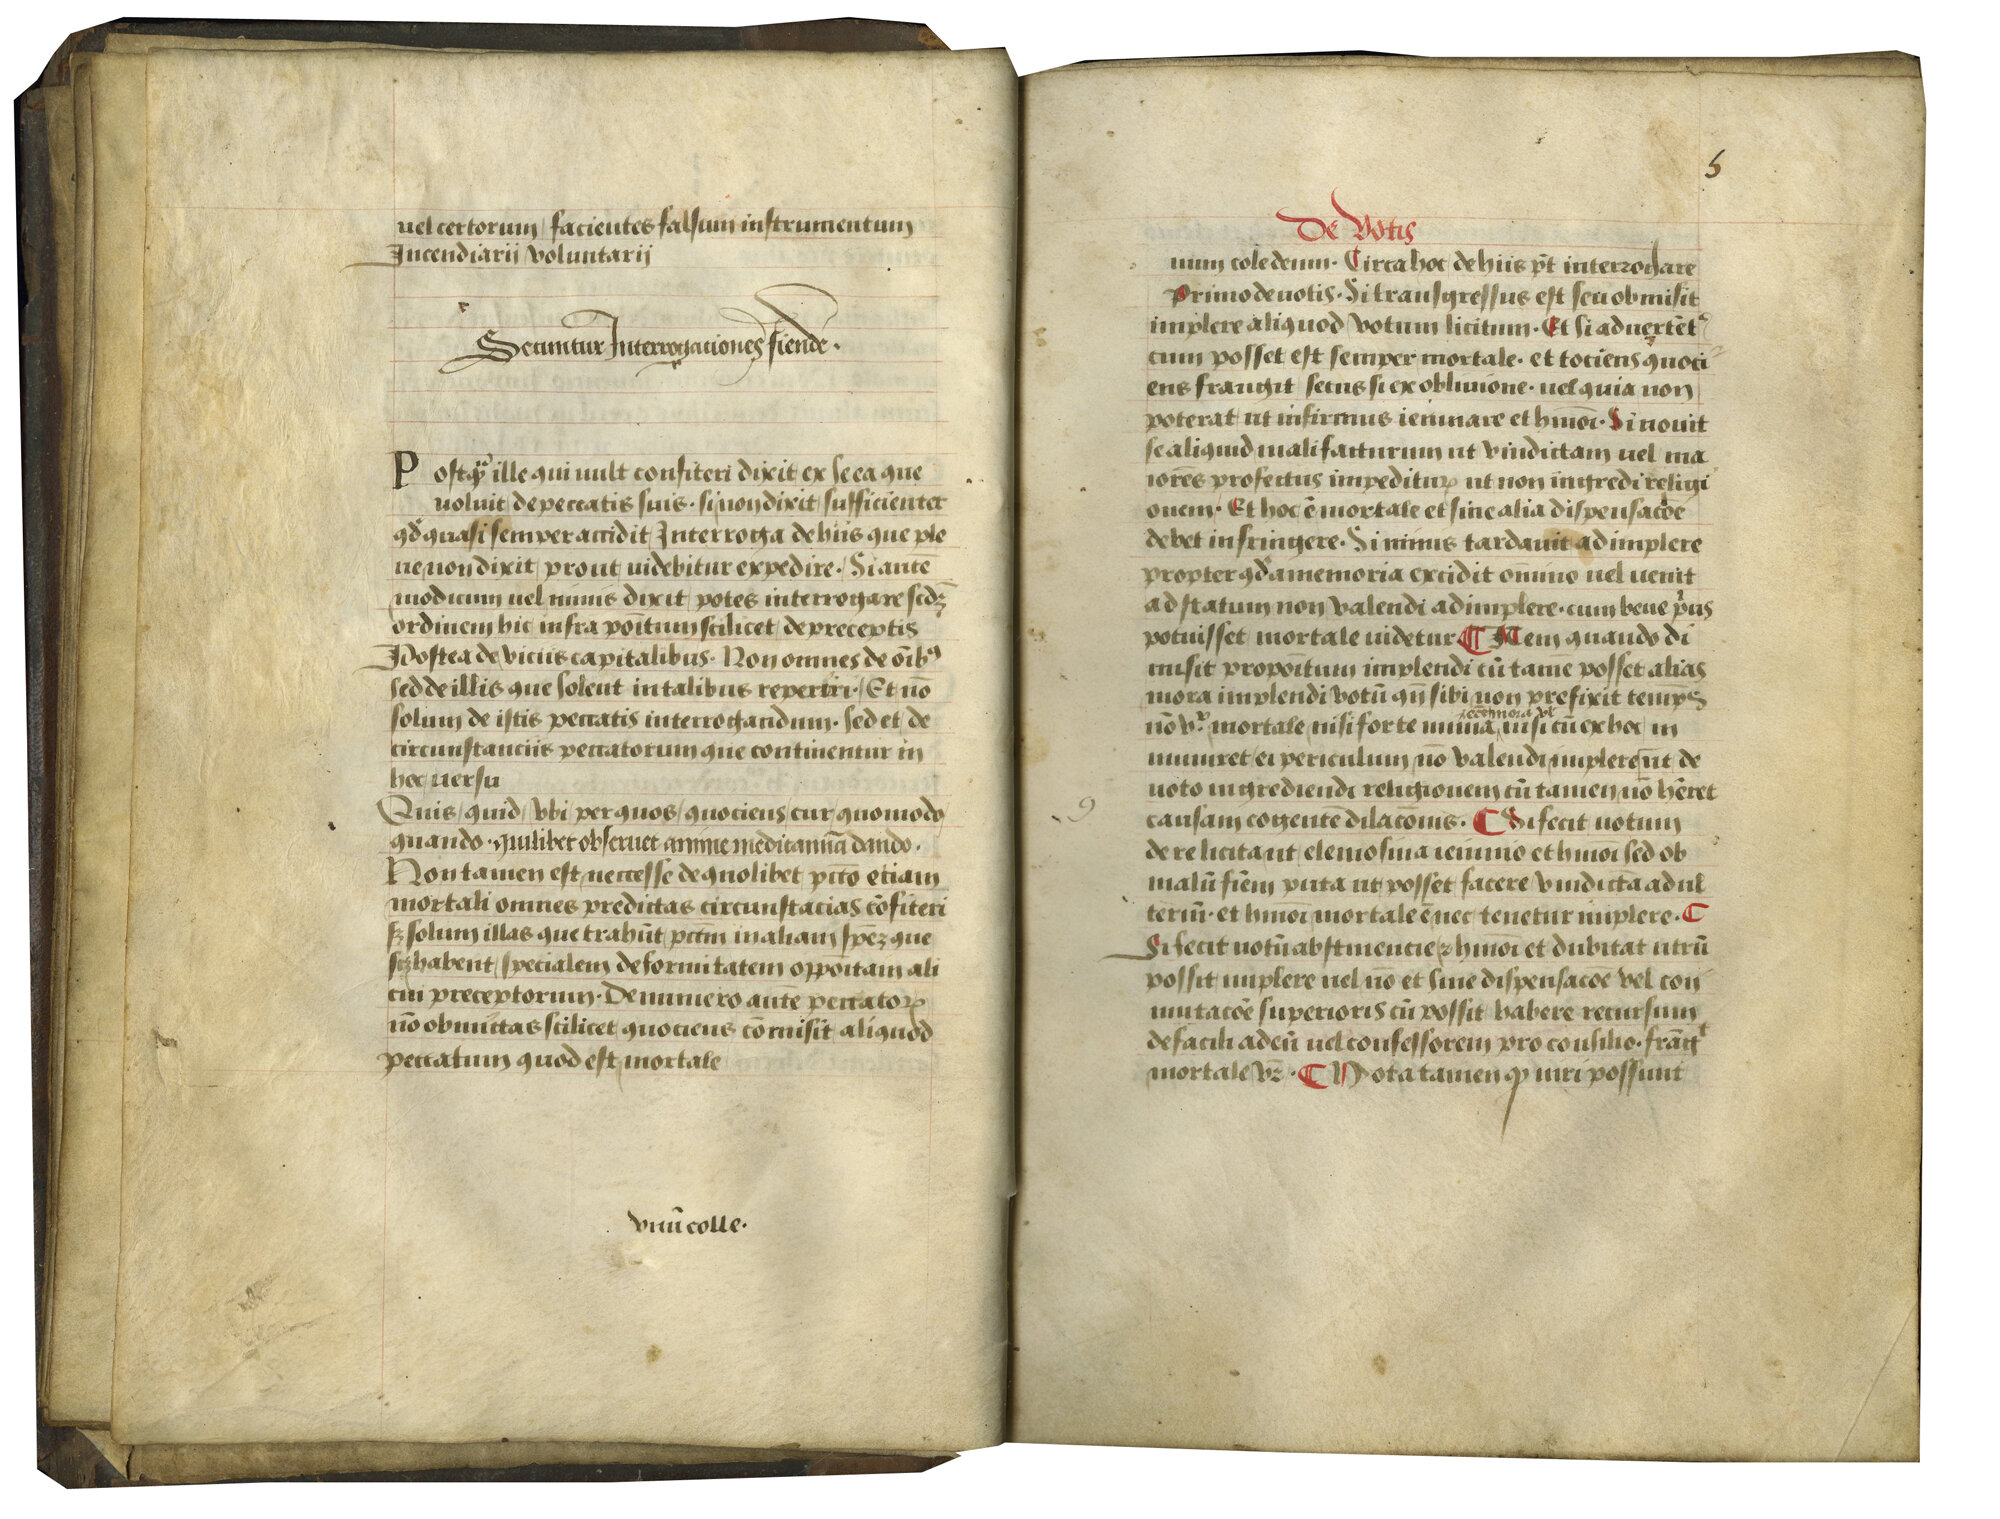 uel certorum facientes falsum instrumentum
Incendiarii voluntarii
Secuntur Interrogaciones fiende.
Postqͣ ille qui uult confiteri dixit ex se ea que
uoluit de peccatis suis. si non dixit sufficienter
qd̓ quasi semper accidit Interroga de hiis que ple
ne non dixit prout uidebitur expedire. Si autē
modicum uel nimis dixit potes interrogare scdꝫ
ordinem hic infra poītum scilicet de preceptis
Postea de viciis capitalibus. Non omnes de oībꝰ
sed de illis que solent in talibus reperiri. Et nō
solum de istis peccatis interrogandum. sed et de
circunstanciis peccatorum que continentur in
hoc uersu
Quis quid vbi per quos quociens cur quomodo
quando. quilibet obseruet anime medicamīa dando.
Non tamen est neccesse de quolibet pctō etiam
mortali omnes predictas circunstacias cōfiteri
sꝫ solum illas que trahūt pctm̄ in aliam spēꝫ que
scꝫ habent specialem deformitatem oppoītam ali
cui preceptorum. De numero autē peccatoꝝ
nō obmittas scilicet quociens cōmisit aliquod
peccatum quod est mortale
vnū colle.
5
De Votis
num cole deum. Circa hoc de hiis pt̄ interrogare
Primo de uotis. Si transgressus est seu obmisit
implere aliquod votum licitum. Et si aduertēt᷑
cum posset est semper mortale. et tociens quoci
ens frangit secus si ex obliuione. uel quia non
poterat ut infirmus ieiunare et hmōi. Si nouit
se aliquid mali facturum ut vindictam uel ma
iorēs profectus impedituꝝ ut non ingredi religi
onem. Et hoc ē mortale et sine alia dispensacōe
debet infringere. Si nimis tardauit adimplere
propter qd̓ a memoria excidit om̄ino uel uenit
ad statum non valendi adimplere. cum bene pͥus
potuisset mortale uidetur ¶ Item quando di
misit propoītum implendi cū tamē posset alias
mora implendi votū qn̄ sibi non prefixit tempꝰ
nō vr̄ mortale nisi forte nimia nisi cū ex hoc in
mineret ei periculum nō valendi implere ut de
uoto ingrediendi religionem cū tamen nō hēret
causam cogentē dilacōnis. ¶ Si fecit uotum
de re licita ut elemosina ieiunio et hmōi sed ob
malū fīem puta ut posset facere vindictā adul
teriū. et hmōi mortale ē nec tenetur implere. ¶
Si fecit uotū abstinencie ⁊ hmōi et dubitat utrū
possit implere uel nō et sine dispensacōe vel con
mutacōe superioris cū possit habere recursum
de facili ad eū uel confessorem pro consilio. frāgͭ
mortale vr̄. ¶ Nota tamen ꝙ uiri possunt
9